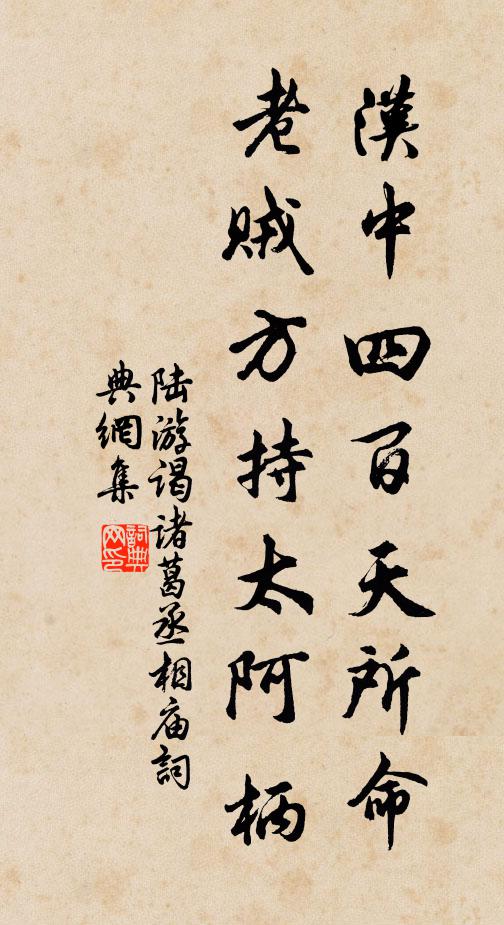 漢中四百天所命
老賊方持太阿柄
陆游谒诸葛丞相庙詞
典網集
詞典網印